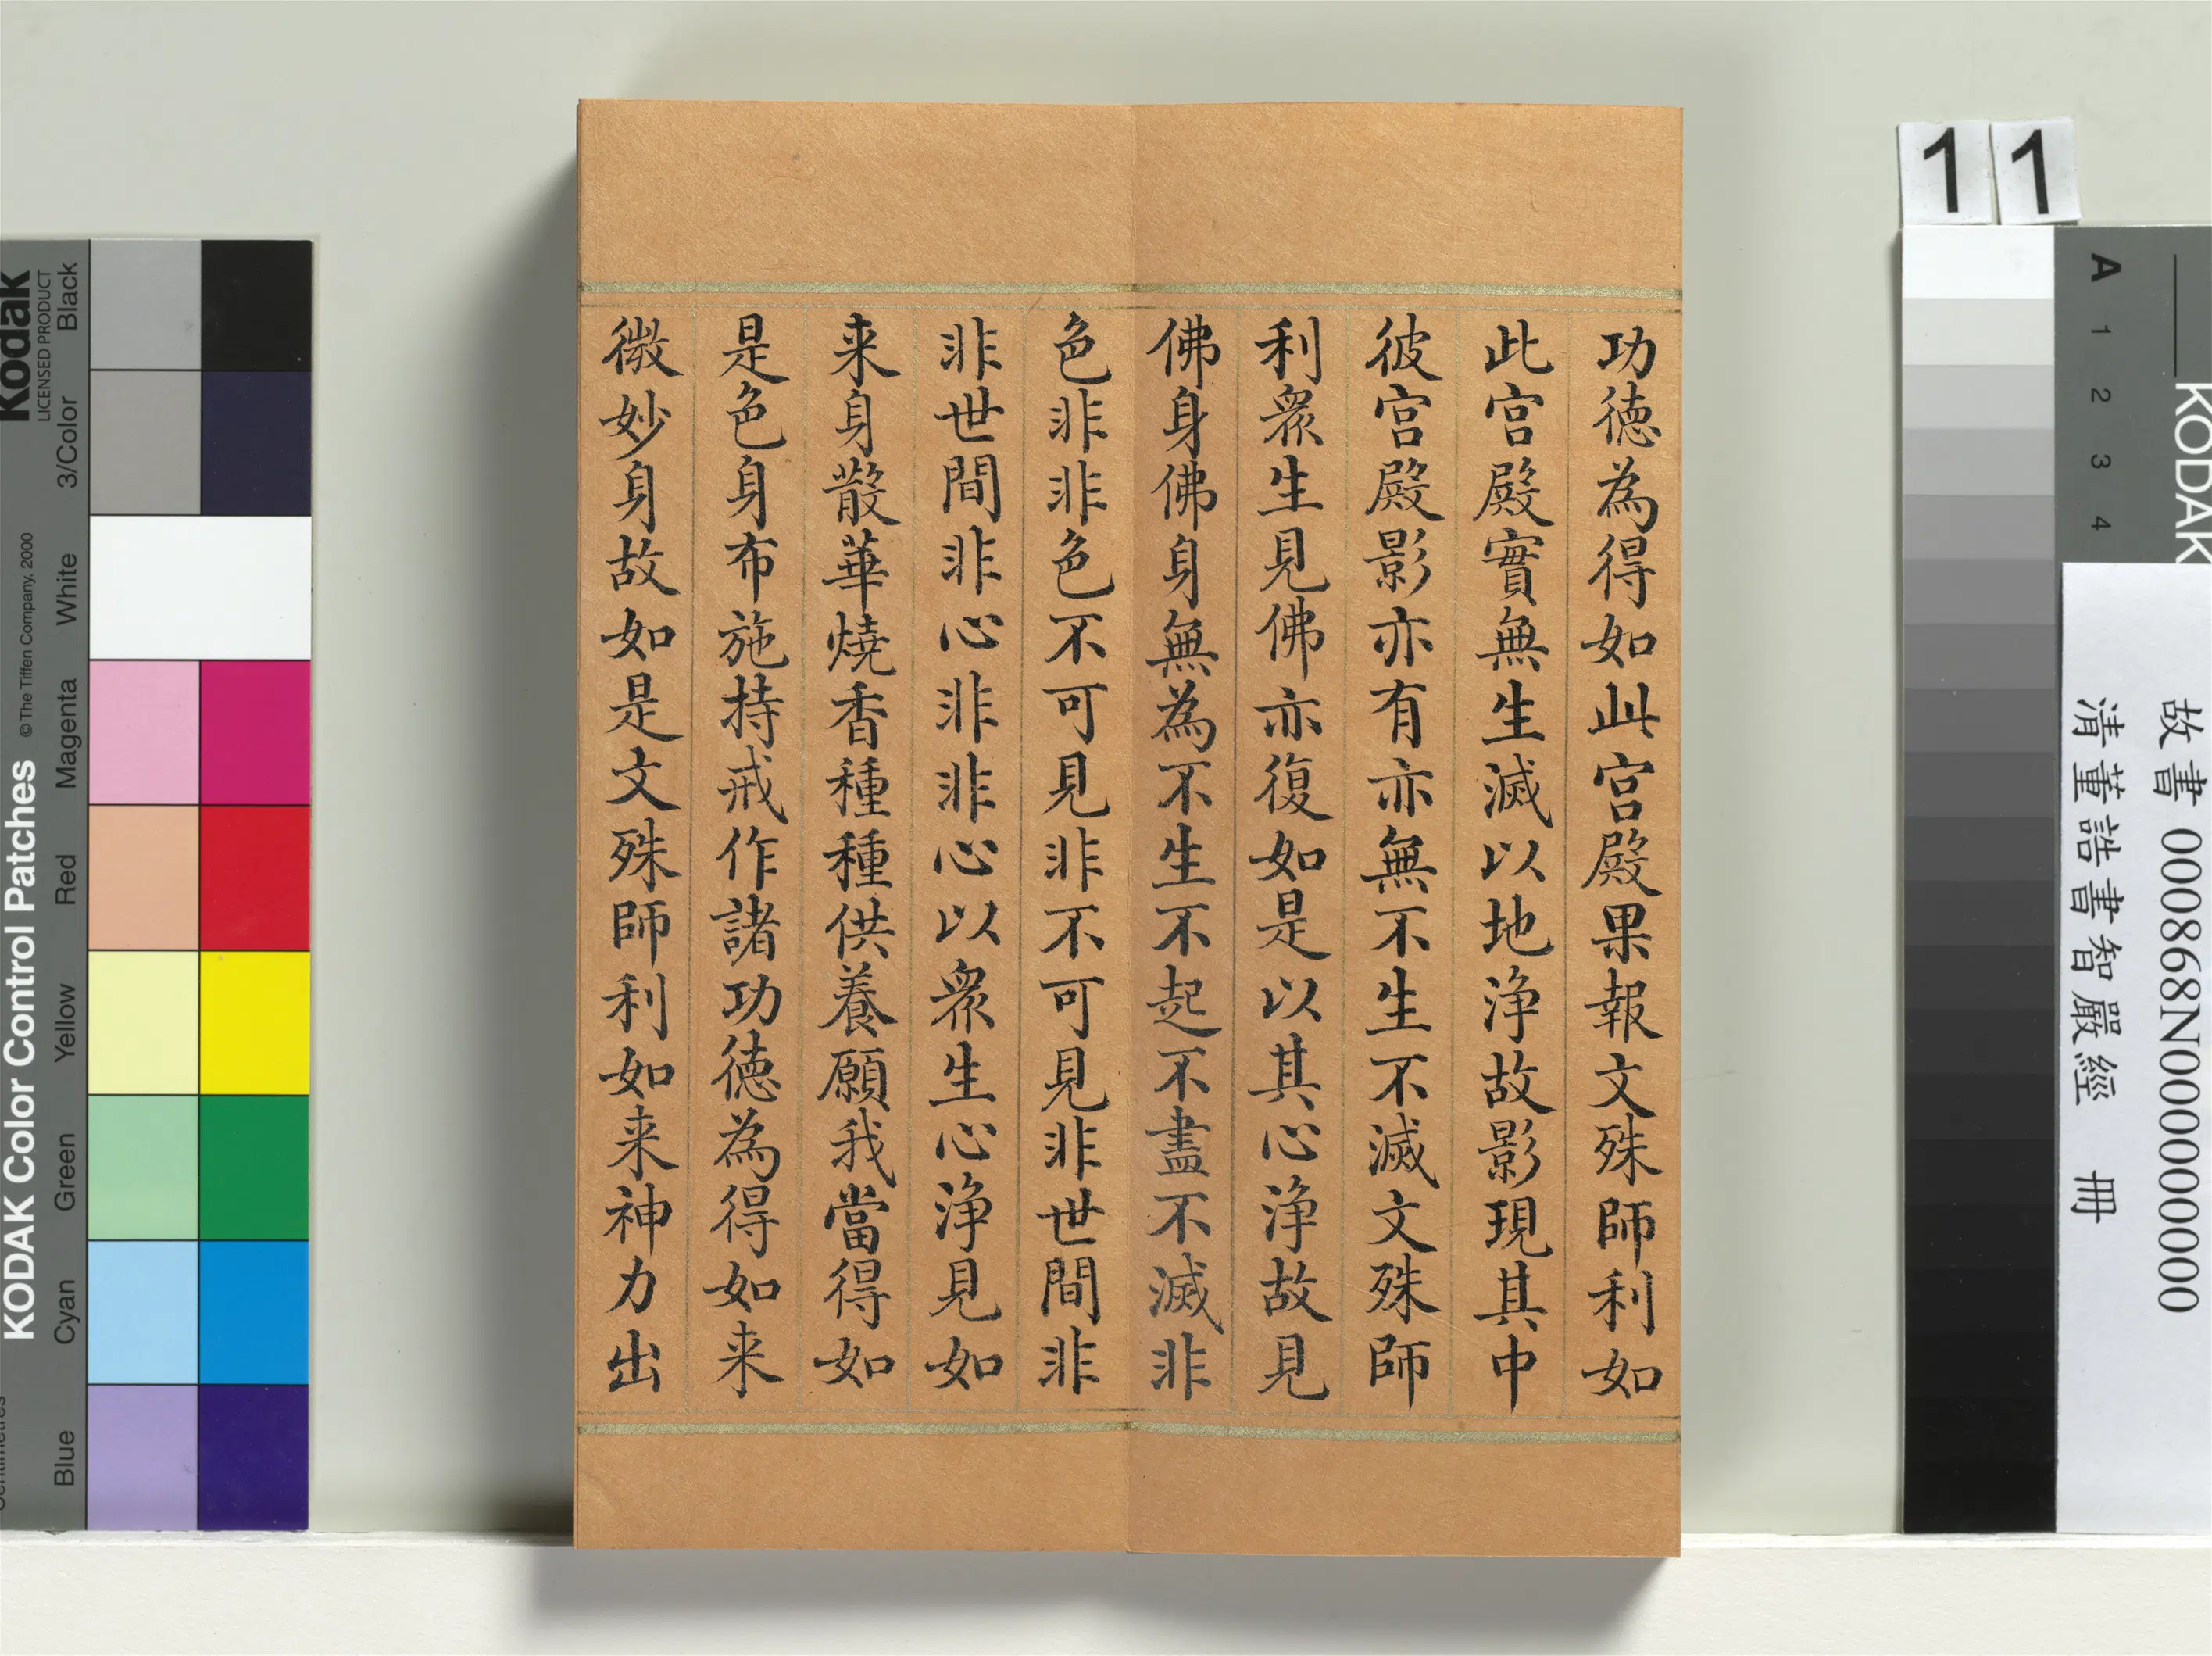 功徳為得如此宫殿果報文殊師利如
此宫殿實無生滅以地浄故影現其中
彼宫殿影亦有亦無不生不滅文殊師
利衆生見佛亦復如是以其心浄故見
佛身佛身無為不生不起不盡不滅非
色非非色不可見非不可見非世間非
非世間非心非非心以衆生心浄見如
来身散華燒香種種供養願我當得如
是色身布施持戒作諸功徳為得如来
微妙身故如是文殊師利如来神力出
11
故書 000868N000000000
清董誥書智嚴經 冊
KODAK
A 1 2 3 4
Kodak
LICENSED PRODUCT
Black
3/Color
White
Magenta
Red
Yellow
Green
Cyan
Blue
KODAK Color Control Patches
©The Tiffen Company, 2000